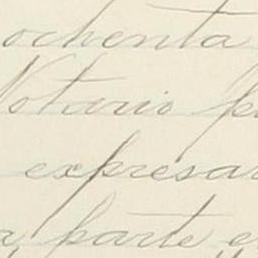 ochenta
Notario p
expresa
parte e